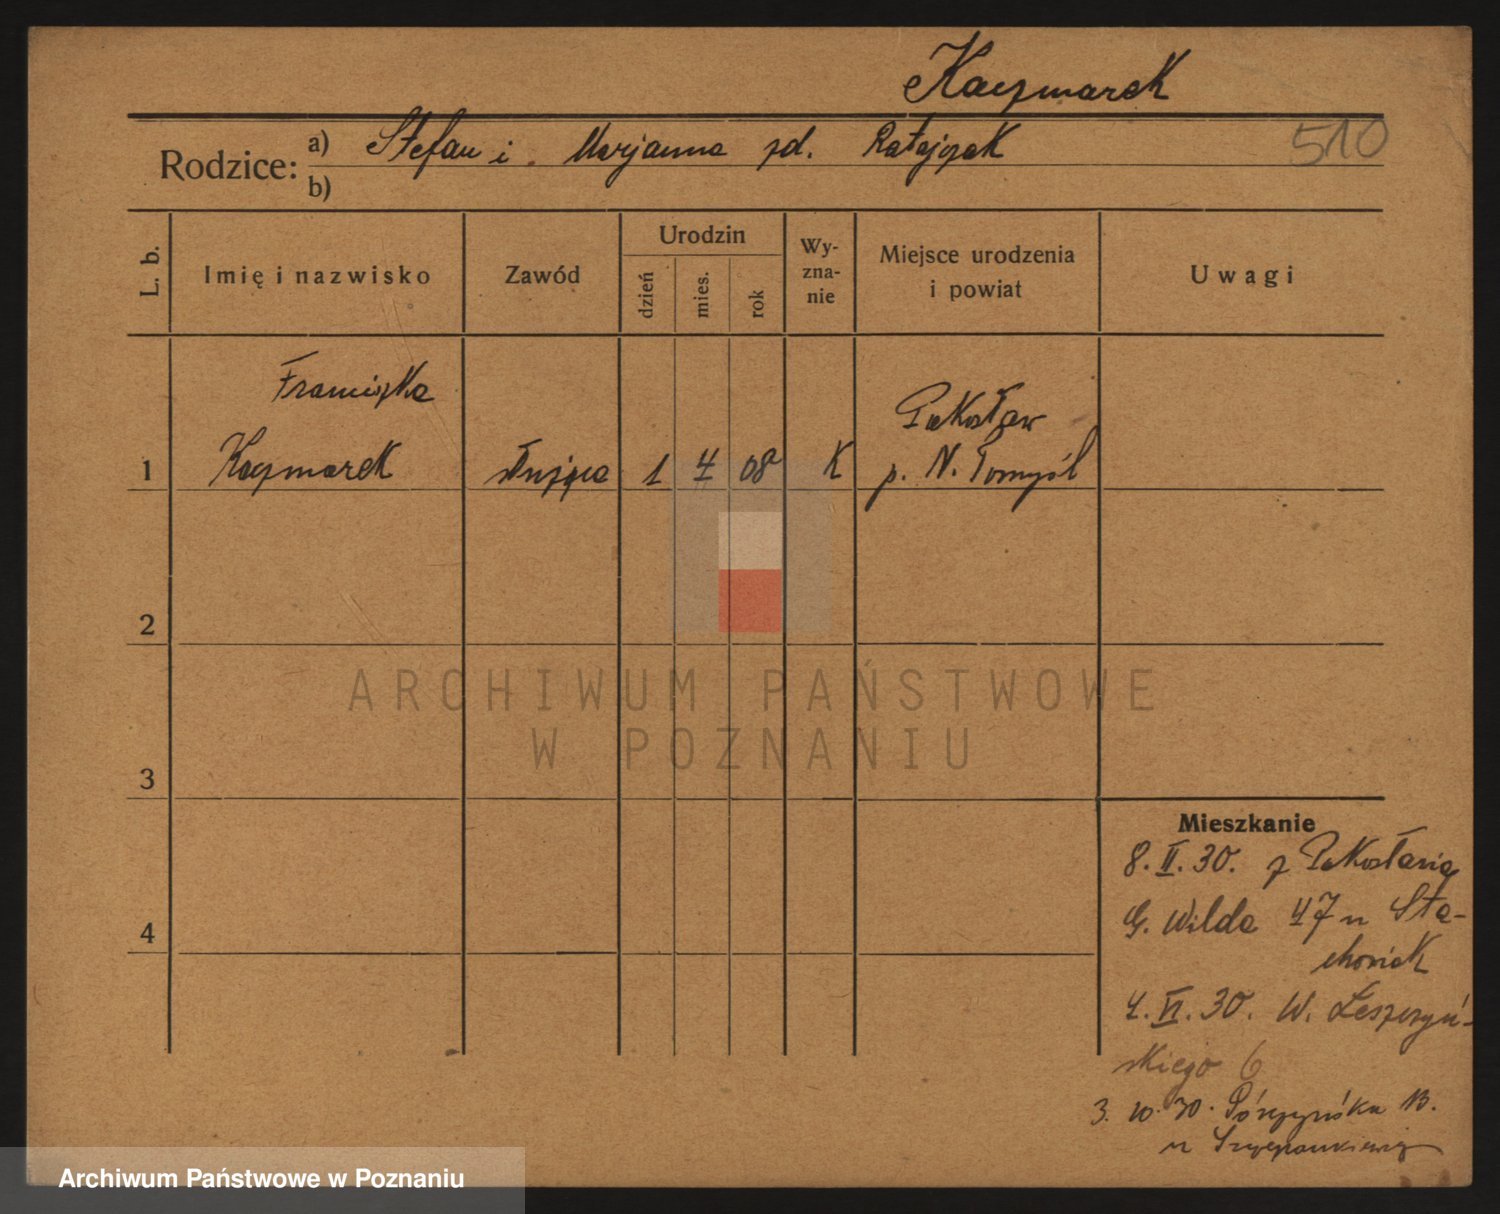 Kaczmarek
510
Rodzice: a) Stefan i Marjanna zd. Ratajczak
b)
L. b.
Imię i nazwisko
Zawód
Urodzin
dzień
mies.
rok
Wy-
zna-
nie
Miejsce urodzenia
i powiat
Uwagi
Franciszka
Pakosław
1 Kaczmarek służąca 1 4 08 K p. N. Tomyśl
2
3
4
ARCHIWUM PAŃSTWOWE
W POZNANIU
Mieszkanie
8. II. 30. z Pakosławia
G. Wilda 47 u Sta-
chowiak
4. VI. 30. W. Leszczyń-
skiego 6
3. 10. 30. 13.
u Szczepankiewicz
Archiwum Państwowe w Poznaniu